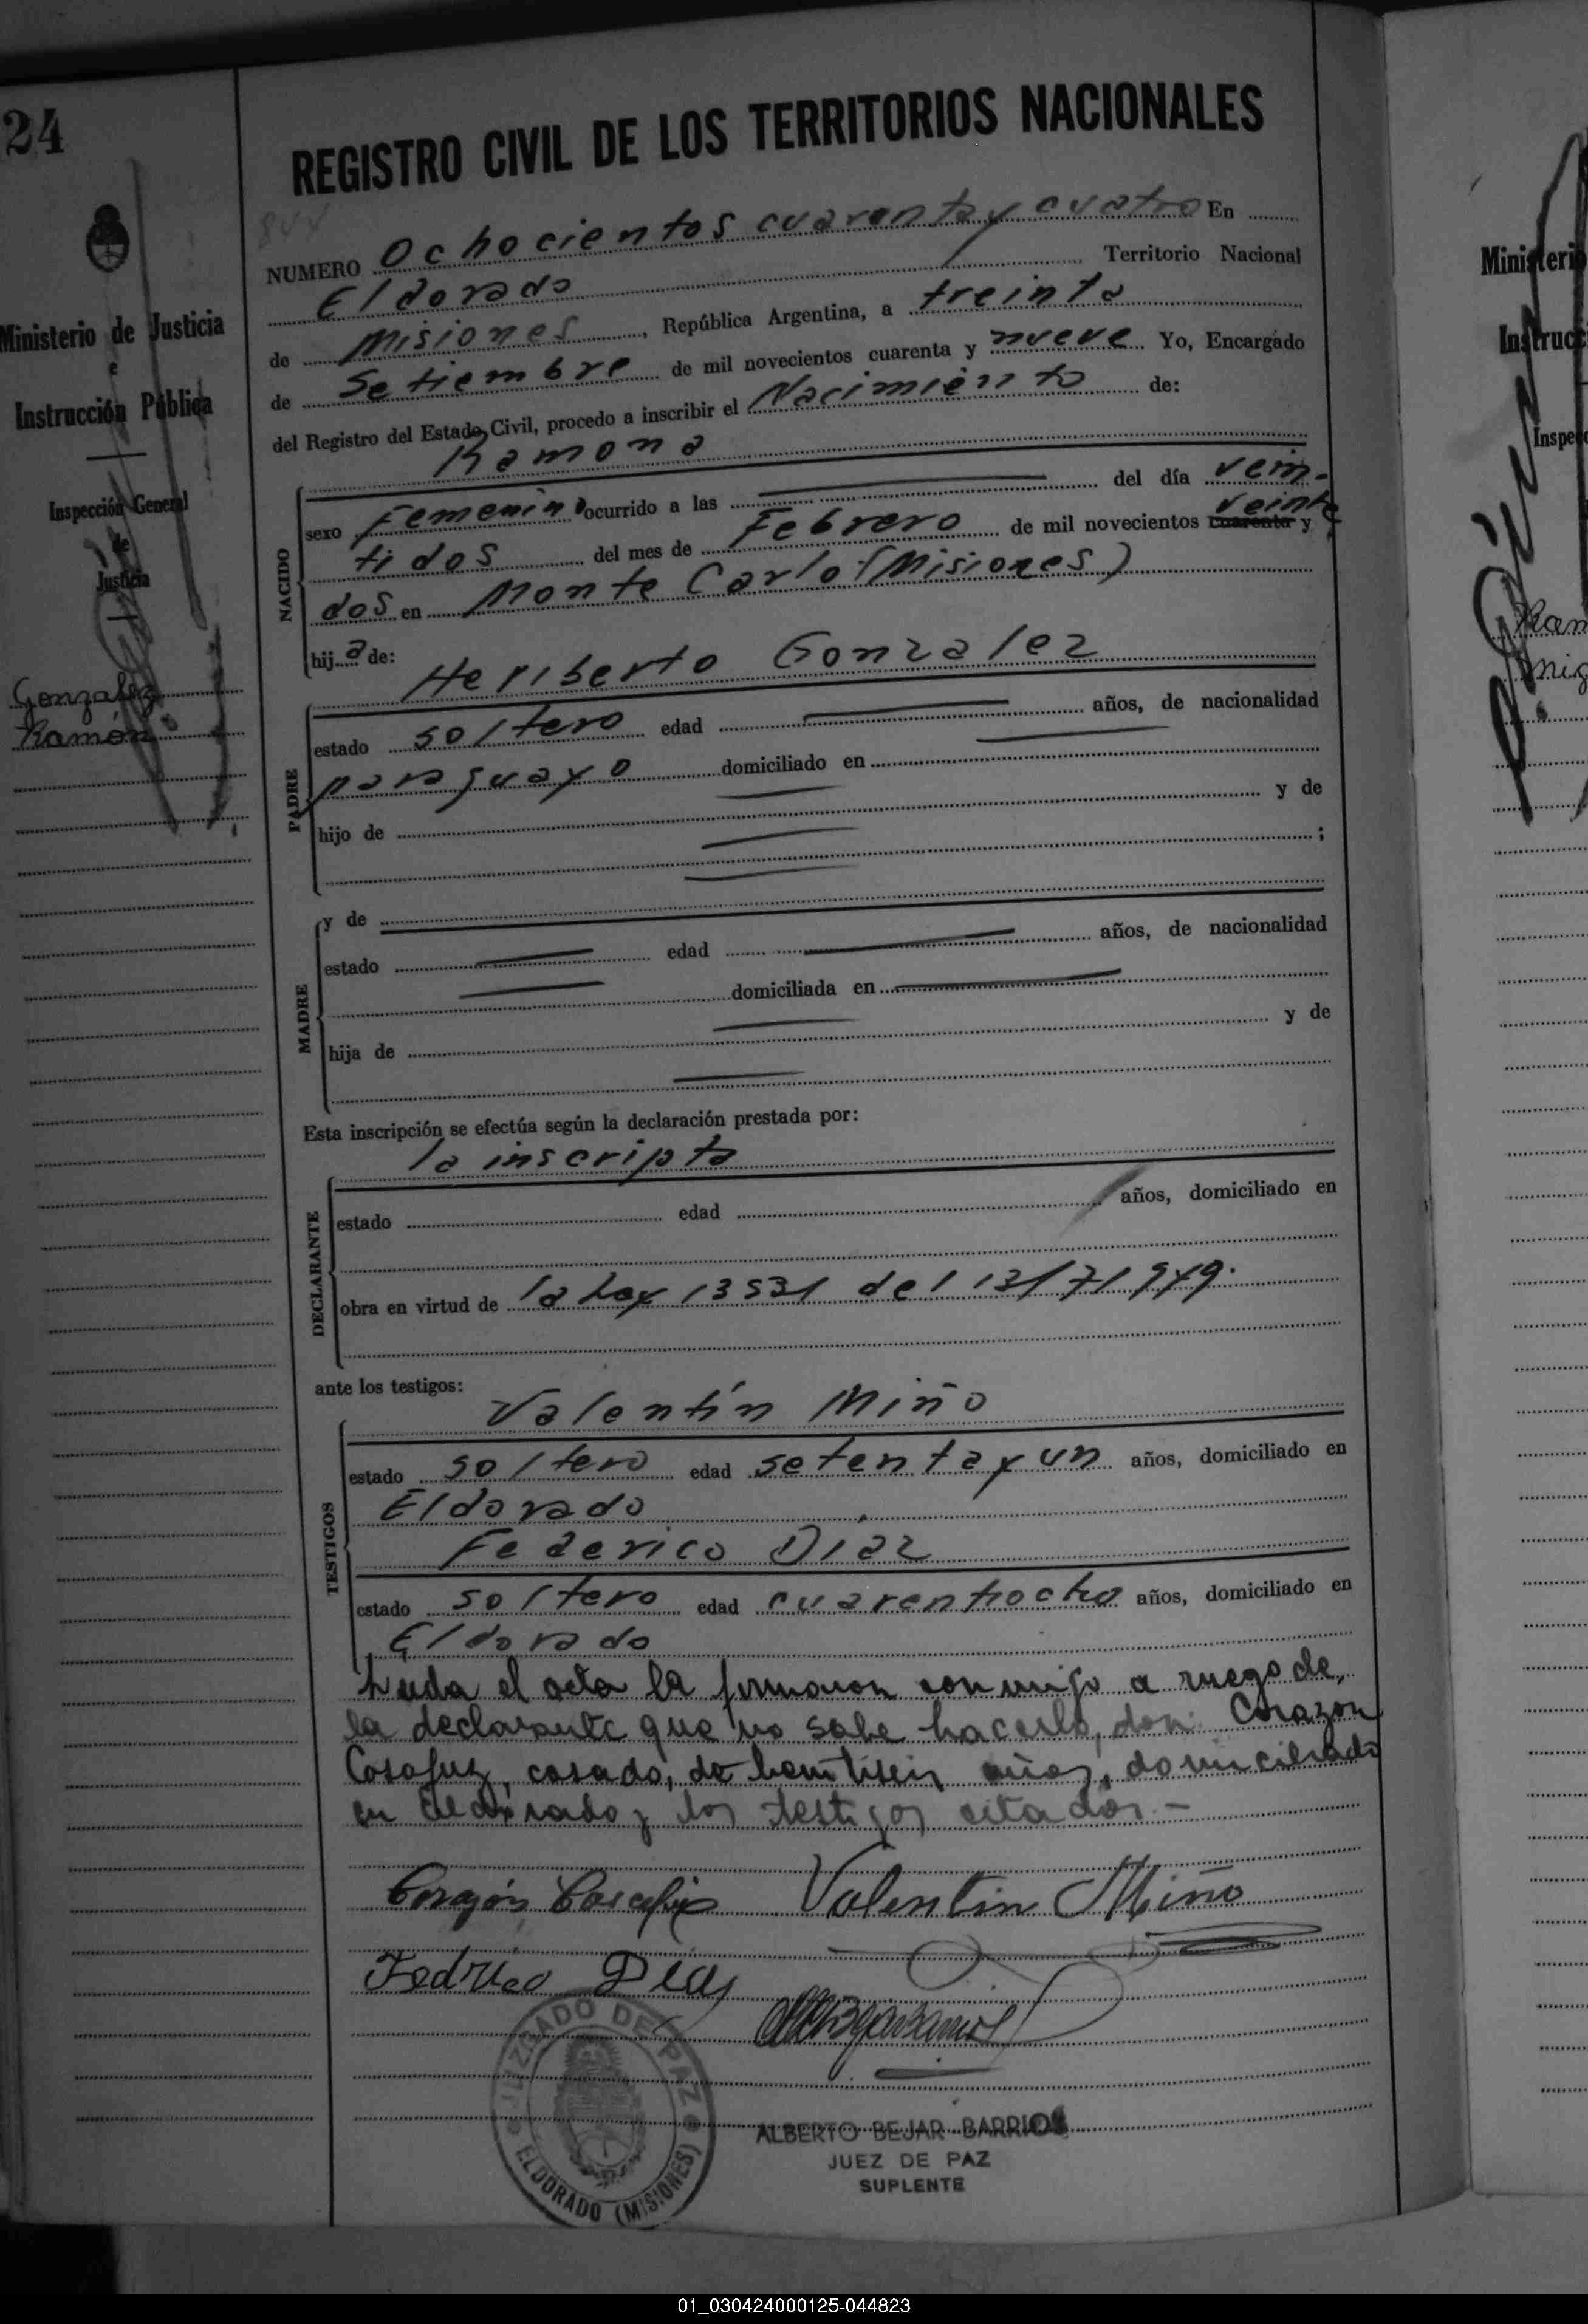 24
REGISTRO CIVIL DE LOS TERRITORIOS NACIONALES
844
NUMERO Ochocientos cuarenta y cuatro En
Eldorado Territorio Nacional
de Misiones, República Argentina, a treinta
de Setiembre de mil novecientos cuarenta y nueve Yo, Encargado
del Registro del Estado Civil, procedo a inscribir el Nacimiento de:
Ramona
NACIDO
sexo Femenino ocurrido a las del día vein-
tidos del mes de Febrero de mil novecientos cuarenta y veinte
dos en Monte Carlo (Misiones)
hija de:
Heriberto Gonzalez
PADRE
estado soltero edad años, de nacionalidad
paraguayo domiciliado en
hijo de y de
;
MADRE
y de
estado edad años, de nacionalidad
domiciliada en
hija de y de
Esta inscripción se efectúa según la declaración prestada por:
la inscripta
DECLARANTE
estado edad años, domiciliado en
obra en virtud de la Ley 13531 del 13/7/949.
ante los testigos:
Valentín Miño
TESTIGOS
estado soltero edad setenta y un años, domiciliado en
Eldorado
Federico Díaz
estado soltero edad cuarentiocho años, domiciliado en
Eldorado
Leida el acta la firmaron conmigo a ruego de
la declarante que no sabe hacerlo, don Corazon
casado, de años, domiciliado
en Eldorado y los testigos citados.-
Corazón Valentin Miño
Fedrico Dias
JUZGADO DE PAZ
ELDORADO (MISIONES)
ALBERTO BEJAR BARRIOS
JUEZ DE PAZ
SUPLENTE
Ministerio de Justicia
e
Instrucción Pública
Inspección General
de
Justicia
Gonzalez
Ramón
Ministeri
Instrucc
Inspec
Ram
01_030424000125-044823